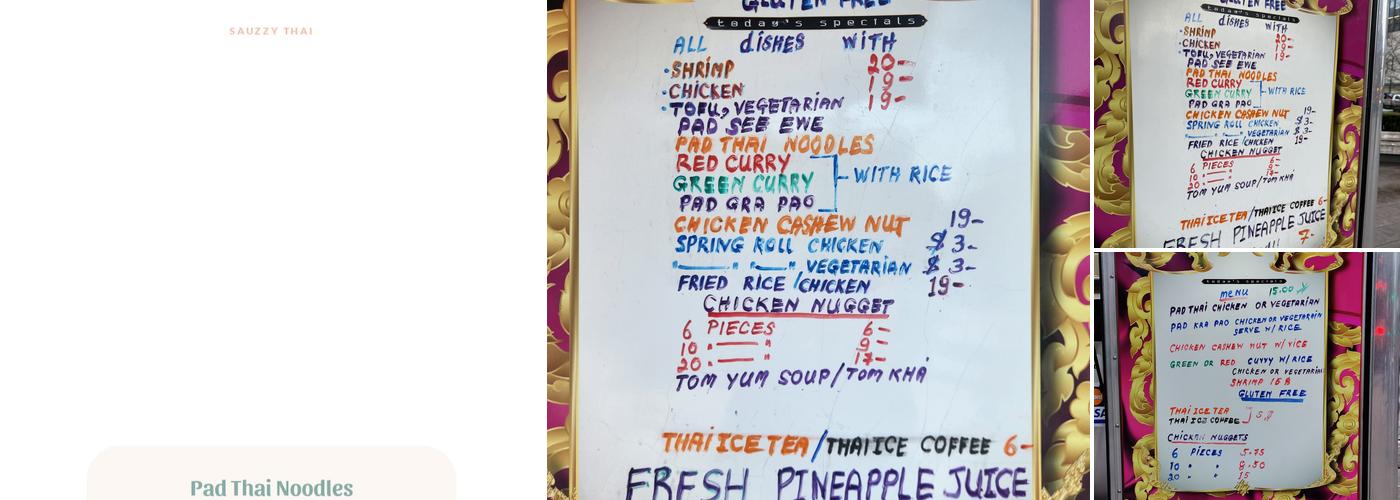 SAUZZY THAI
Pad Thai Noodles
GLUTEN FREE
today's specials
ALL DISHES WITH
• SHRIMP 20-
• CHICKEN 19-
• TOFU, VEGETARIAN 19-
PAD SEE EWE
PAD THAI NOODLES
RED CURRY
GREEN CURRY WITH RICE
PAD GRA PAO
CHICKEN CASHEW NUT 19-
SPRING ROLL CHICKEN $ 3-
" " VEGETARIAN $ 3-
FRIED RICE /CHICKEN 19-
CHICKEN NUGGET
6 PIECES 6-
10 " " 9-
20 " " 17-
TOM YUM SOUP/TOM KHA
THAI ICE TEA /THAI ICE COFFEE 6-
FRESH PINEAPPLE JUICE
today's specials
ALL DISHES WITH
• SHRIMP 20-
• CHICKEN 19-
• TOFU, VEGETARIAN 19-
PAD SEE EWE
PAD THAI NOODLES
RED CURRY
GREEN CURRY WITH RICE
PAD GRA PAO
CHICKEN CASHEW NUT 19-
SPRING ROLL CHICKEN $ 3-
" " VEGETARIAN $ 3-
FRIED RICE /CHICKEN 19-
CHICKEN NUGGET
6 PIECES 6-
10 " " 9-
20 " " 17-
TOM YUM SOUP/TOM KHA
THAI ICE TEA/THAI ICE COFFEE 6-
FRESH PINEAPPLE JUICE
7-
today's specials
menu 15.00
PAD THAI CHICKEN OR VEGETARIAN
PAD KRA PAO CHICKEN OR VEGETARAIN
SERVE W/ RICE
CHICKEN CASHEW NUT W/ RICE
GREEN OR RED CUVVY W/ RICE
CHICKEN OR VEGETARIAN
SHRIMP 16
GLUTEN FREE
THAI ICE TEA
THAI ICE COFFEE
CHICKEN NUGGETS
6 PIECES 5.75
10 " " 8.50
20 " " 15